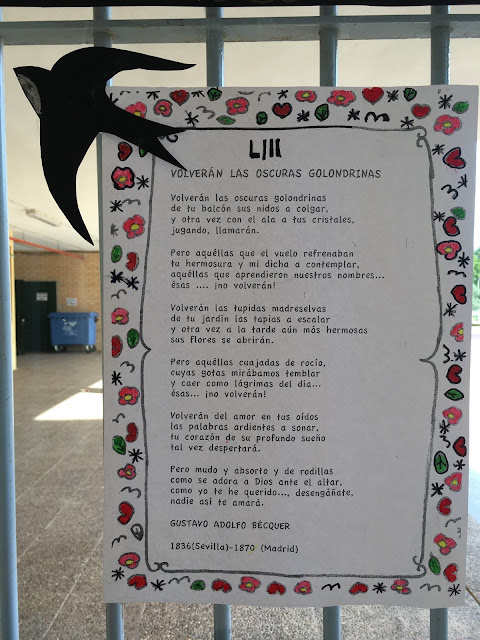 LIII
VOLVERÁN LAS OSCURAS GOLONDRINAS
Volverán las oscuras golondrinas
de tu balcón sus nidos a colgar,
y otra vez con el ala a tus cristales,
jugando, llamarán.
Pero aquéllas que el vuelo refrenaban
tu hermosura y mi dicha a contemplar,
aquéllas que aprendieron nuestros nombres...
ésas .... ¡no volverán!
Volverán las tupidas madreselvas
de tu jardín las tapias a escalar
y otra vez a la tarde aún más hermosas
sus flores se abrirán.
Pero aquéllas cuajadas de rocío,
cuyas gotas mirábamos temblar
y caer como lágrimas del día...
ésas... ¡no volverán!
Volverán del amor en tus oídos
las palabras ardientes a sonar,
tu corazón de su profundo sueño
tal vez despertará.
Pero mudo y absorto y de rodillas
como se adora a Dios ante el altar,
como yo te he querido..., desengáñate,
nadie así te amará.
GUSTAVO ADOLFO BÉCQUER
1836(Sevilla)-1870 (Madrid)